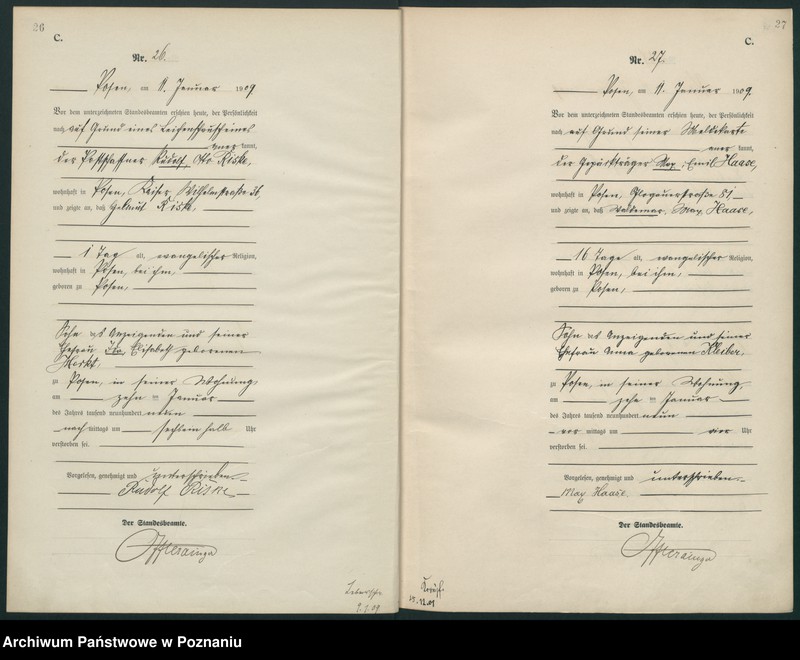 26
C.
Nr. 26.
Posen, am 11. Januar 1909
Vor dem unterzeichneten Standesbeamten erschien heute, der Persönlichkeit
nach, auf Grund eines
kannt,
der Rudolf, Otto Riske,
wohnhaft in Posen, Kaiser Wilhelmstraße 36,
und zeigte an, daß Helmut Riske,
1 Tag alt, evangelischer Religion,
wohnhaft in Posen, bei ihm,
geboren zu Posen,
Sohn des Anzeigenden und seiner
Ehefrau Ida, Elisabeth geborenen
zu Posen, in seiner Wohnung
am zehn ten Januar
des Jahres tausend neunhundert neun
nach mittags um sechsein halb Uhr
verstorben sei.
Vorgelesen, genehmigt und unterschrieben
Rudolf Riske
Der Standesbeamte.
27
C.
Nr. 27.
Posen, am 11. Januar 1909
Vor dem unterzeichneten Standesbeamten erschien heute, der Persönlichkeit
nach auf Grund seiner Meldekarte
kannt,
der Gepäckträger Max, Emil Haase,
wohnhaft in Posen, Glogauerstraße 81
und zeigte an, daß Waldemar, Max, Haase,
16 Tage alt, evangelischer Religion,
wohnhaft in Posen, bei ihm,
geboren zu Posen,
Sohn des Anzeigenden und seiner
Ehefrau Anna geborenen
zu Posen, in seiner Wohnung
am zehn ten Januar
des Jahres tausend neunhundert neun
vor mittags um vier Uhr
verstorben sei.
Vorgelesen, genehmigt und unterschrieben
Max Haase
Der Standesbeamte.
Archiwum Państwowe w Poznaniu